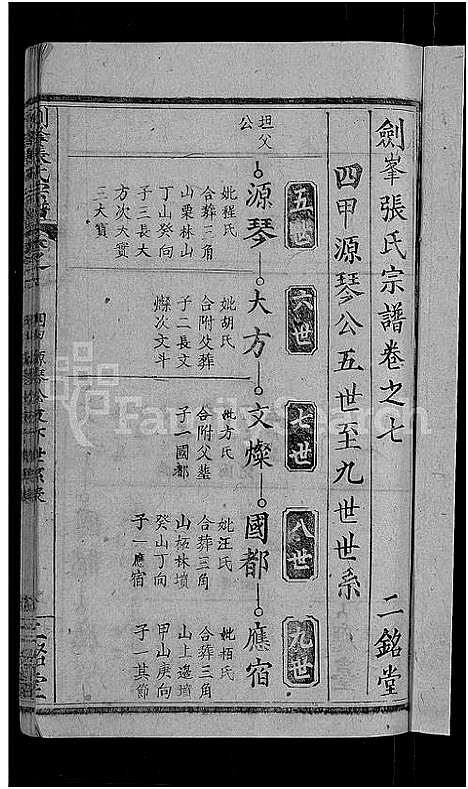 劍峯張氏宗譜卷之七
二銘堂
四甲源琴公五世至九世世系
五世
六世
七世
八世
九世
坦父
公
源琴
大方
文燦
國都
應宿
妣程氏
合葬三角
山栗林山
丁山癸向
子三長大
方次大寶
三大寳
妣胡氏
合附父葬
子二長文
燦次文斗
妣方氏
合附父塋
子一國都
妣汪氏
合葬三角
山柘林墳
癸山丁向
子一應宿
妣栢氏
合葬三角
山上邊墳
甲山庚向
子一其節
二銘堂
FamilySearch